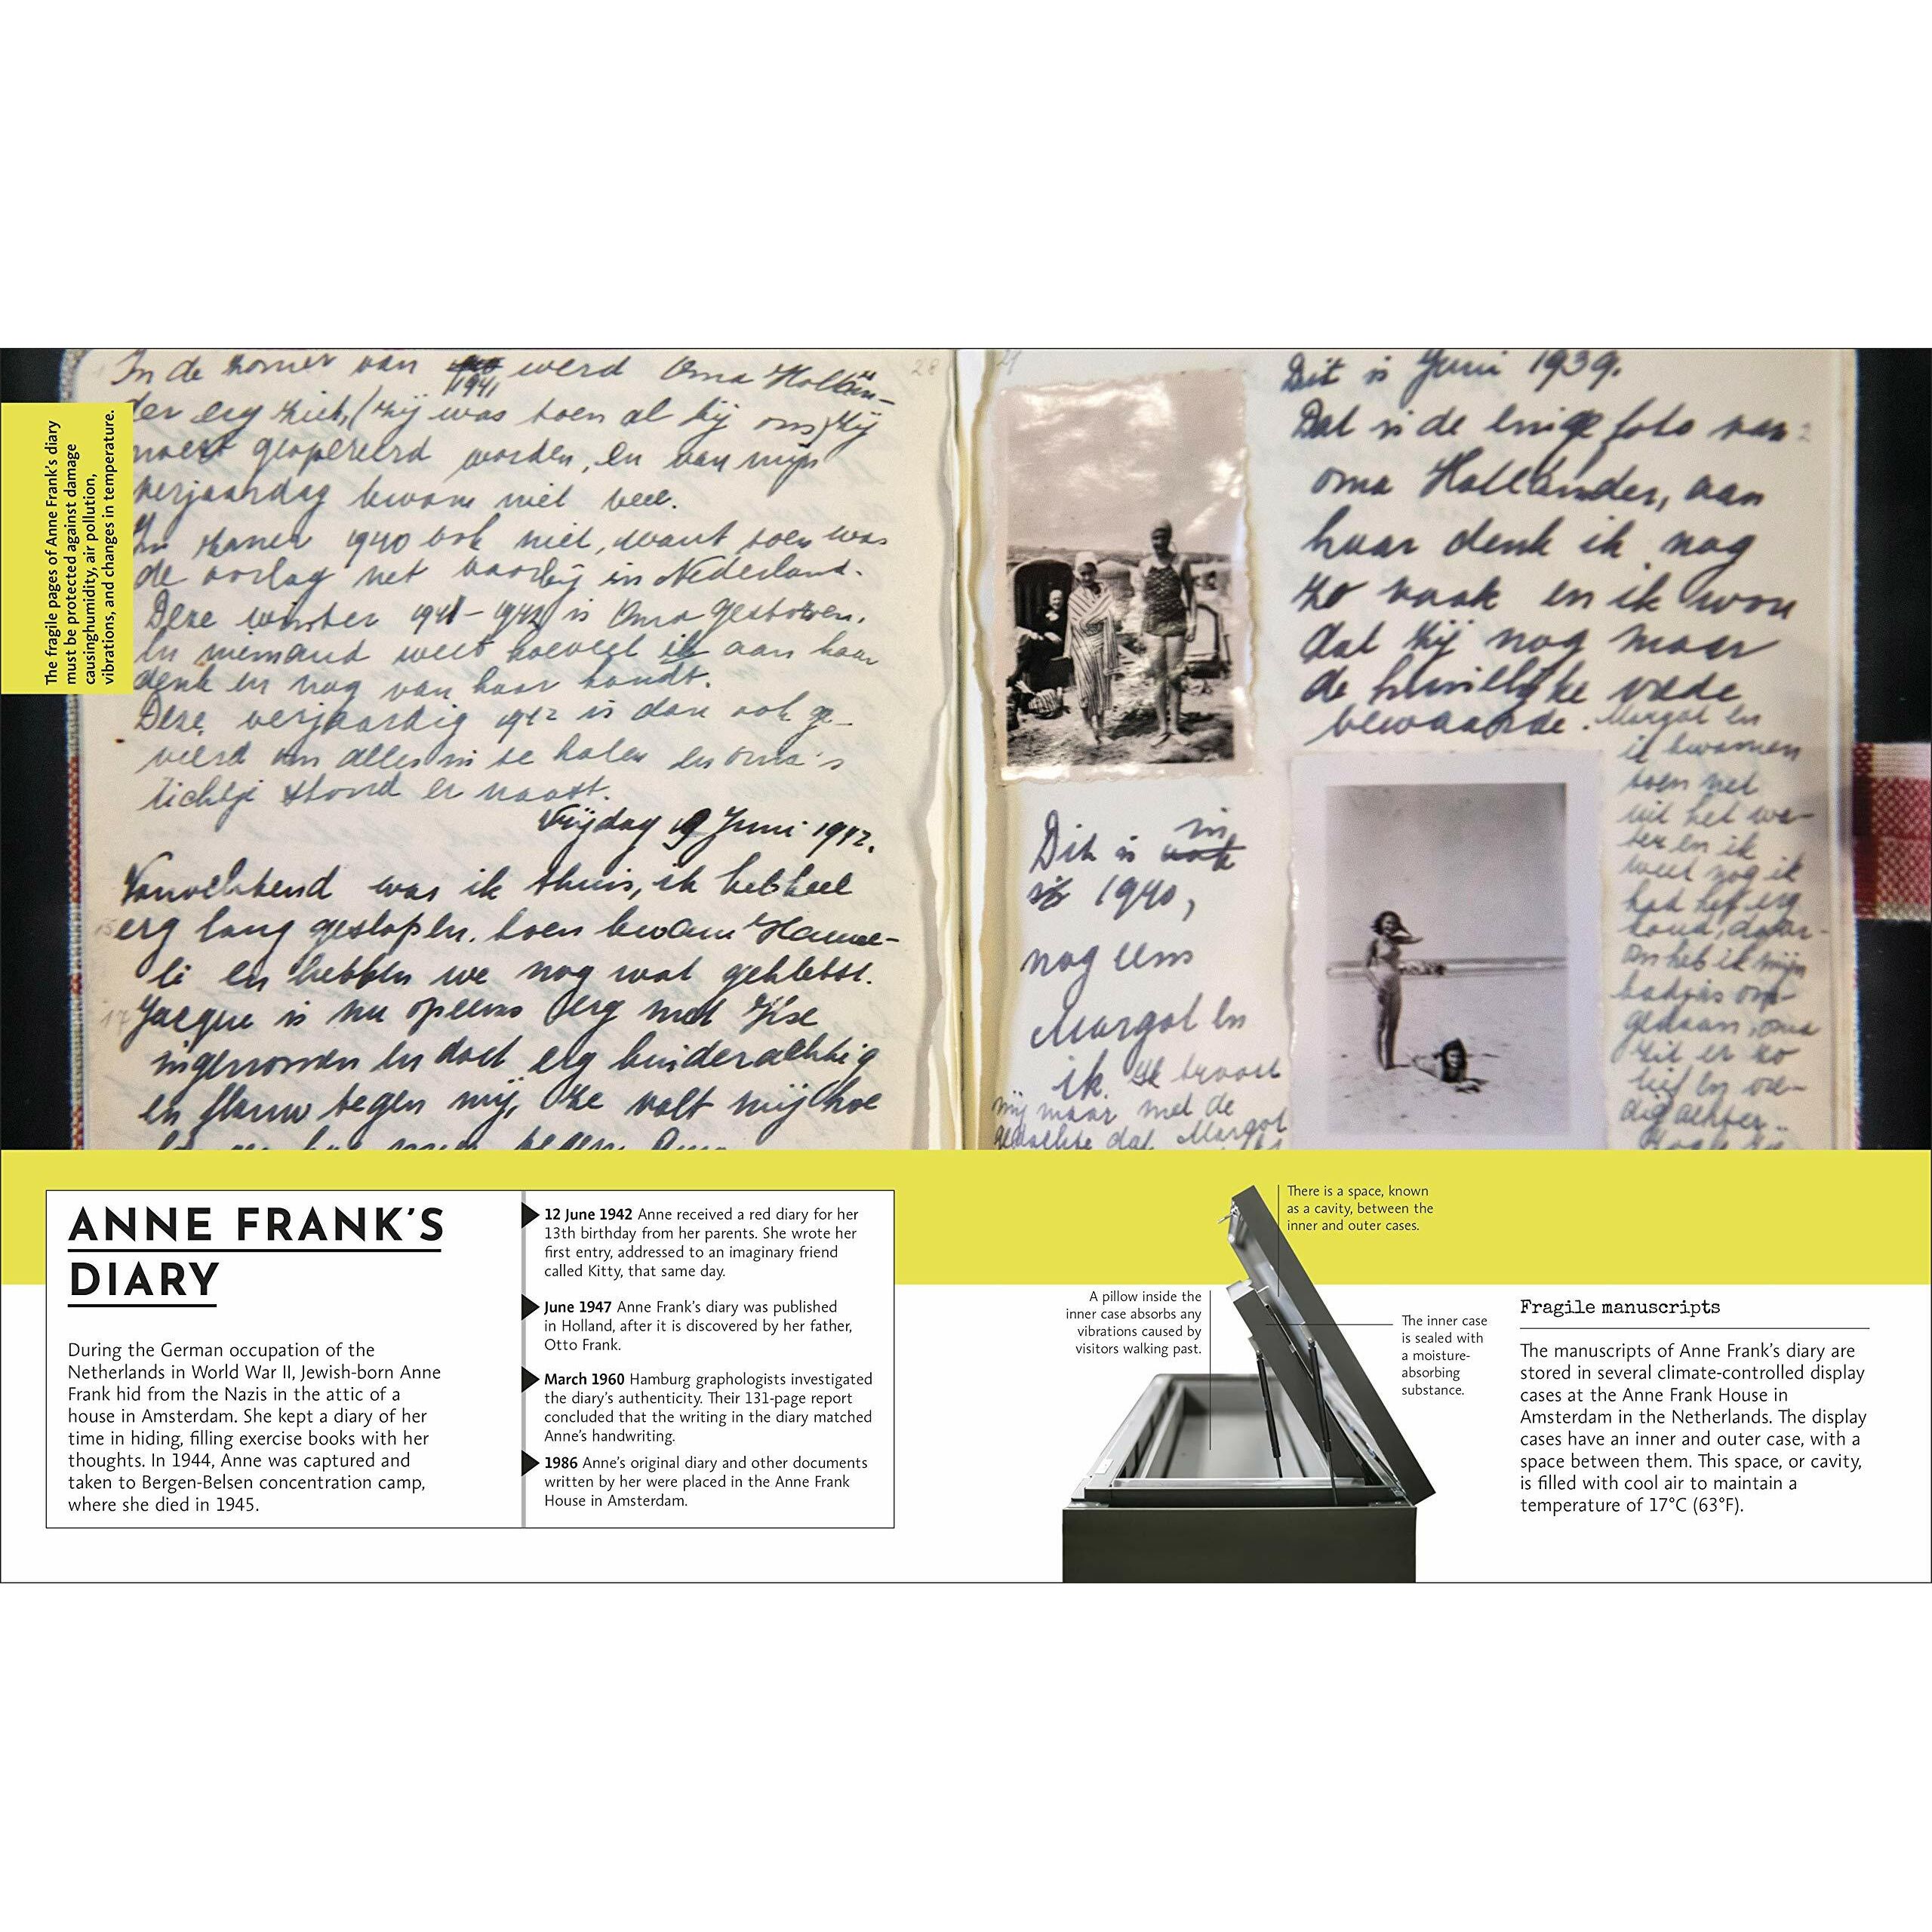 In de zomer van 1941 werd Oma Hollän-
der erg ziek, (zij was toen al bij ons) zij
moest geopereerd worden, en van mijn
verjaardag kwam niet veel.
In zomer 1940 ook niet, want toen was
de oorlog net voorbij in Nederland.
Deze winter 1941-1942 is Oma gestorven.
En niemand weet hoeveel ik aan haar
denk en nog van haar houdt.
Deze verjaardig 1942 is dan ook ge-
vierd om alles in te halen en oma's
lichtje stond er naast.
Vrijdag 19 Juni 1942.
Vanochtend was ik thuis, ik heb heel
erg lang geslapen, toen kwam Hanne-
li en hebben we nog wat gekletst.
Jacque is nu opeens erg met Ilse
ingenomen en doet erg kinderachtig
en flauw tegen mij, ze valt mij hoe
28
Dit is Juni 1939.
Dat is de enige foto van
oma Holländer, aan
haar denk ik nog
zo vaak en ik wou
dat zij nog maar
de huiselijke vrede
bewaarde. Margot en
ik kwamen
toen net
uit het wa-
ter en ik
weet nog ik
had het erg
koud, daar-
om heb ik mijn
badjas om-
gedaan, oma
zit er zo
lief en vre-
dig achter..
Dit is in
1940,
nog eens
Margot en
ik. Ik troost
mij maar met de
gedachte dat Margot
The fragile pages of Anne Frank's diary
must be protected against damage
causinghumidity, air pollution,
vibrations, and changes in temperature.
ANNE FRANK'S
DIARY
During the German occupation of the
Netherlands in World War II, Jewish-born Anne
Frank hid from the Nazis in the attic of a
house in Amsterdam. She kept a diary of her
time in hiding, filling exercise books with her
thoughts. In 1944, Anne was captured and
taken to Bergen-Belsen concentration camp,
where she died in 1945.
12 June 1942 Anne received a red diary for her
13th birthday from her parents. She wrote her
first entry, addressed to an imaginary friend
called Kitty, that same day.
June 1947 Anne Frank's diary was published
in Holland, after it is discovered by her father,
Otto Frank.
March 1960 Hamburg graphologists investigated
the diary's authenticity. Their 131-page report
concluded that the writing in the diary matched
Anne's handwriting.
1986 Anne's original diary and other documents
written by her were placed in the Anne Frank
House in Amsterdam.
There is a space, known
as a cavity, between the
inner and outer cases.
A pillow inside the
inner case absorbs any
vibrations caused by
visitors walking past.
The inner case
is sealed with
a moisture-
absorbing
substance.
Fragile manuscripts
The manuscripts of Anne Frank's diary are
stored in several climate-controlled display
cases at the Anne Frank House in
Amsterdam in the Netherlands. The display
cases have an inner and outer case, with a
space between them. This space, or cavity,
is filled with cool air to maintain a
temperature of 17°C (63°F).